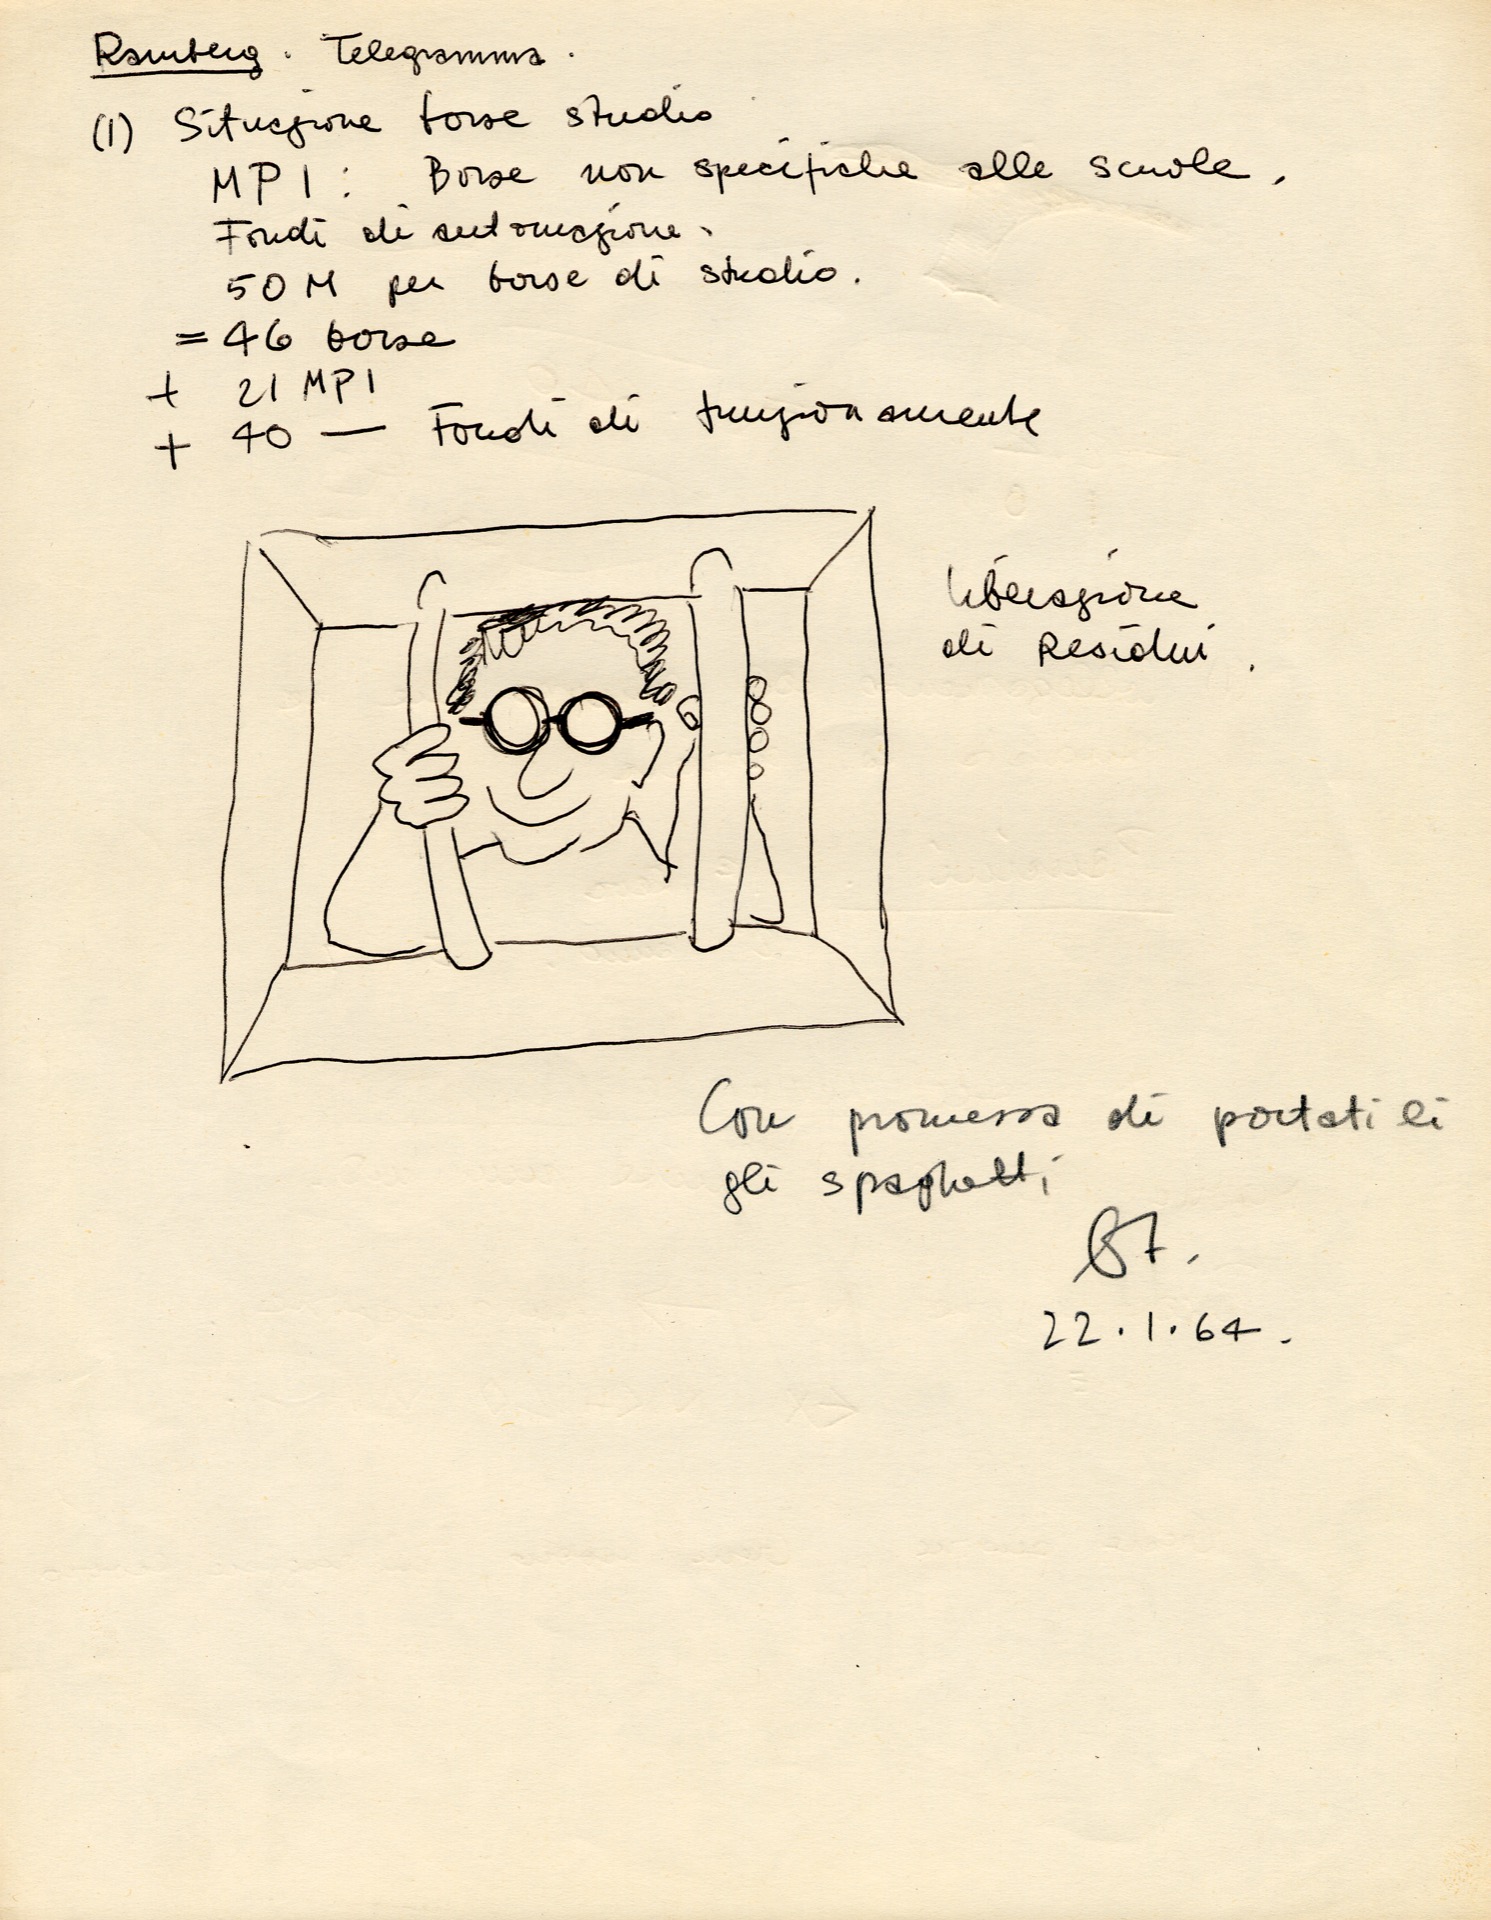 Ramberg. Telegramma.
(1) Situazione borse studio
MPI: Borse non specifiche alle scuole,
Fondi di automazione.
50 M per borse di studio.
= 46 borse
+ 21 MPI
+ 40 — Fondi di funzionamento
liberazione
di Residui.
Con promessa di portati li
gli spaghetti
22.1.64.